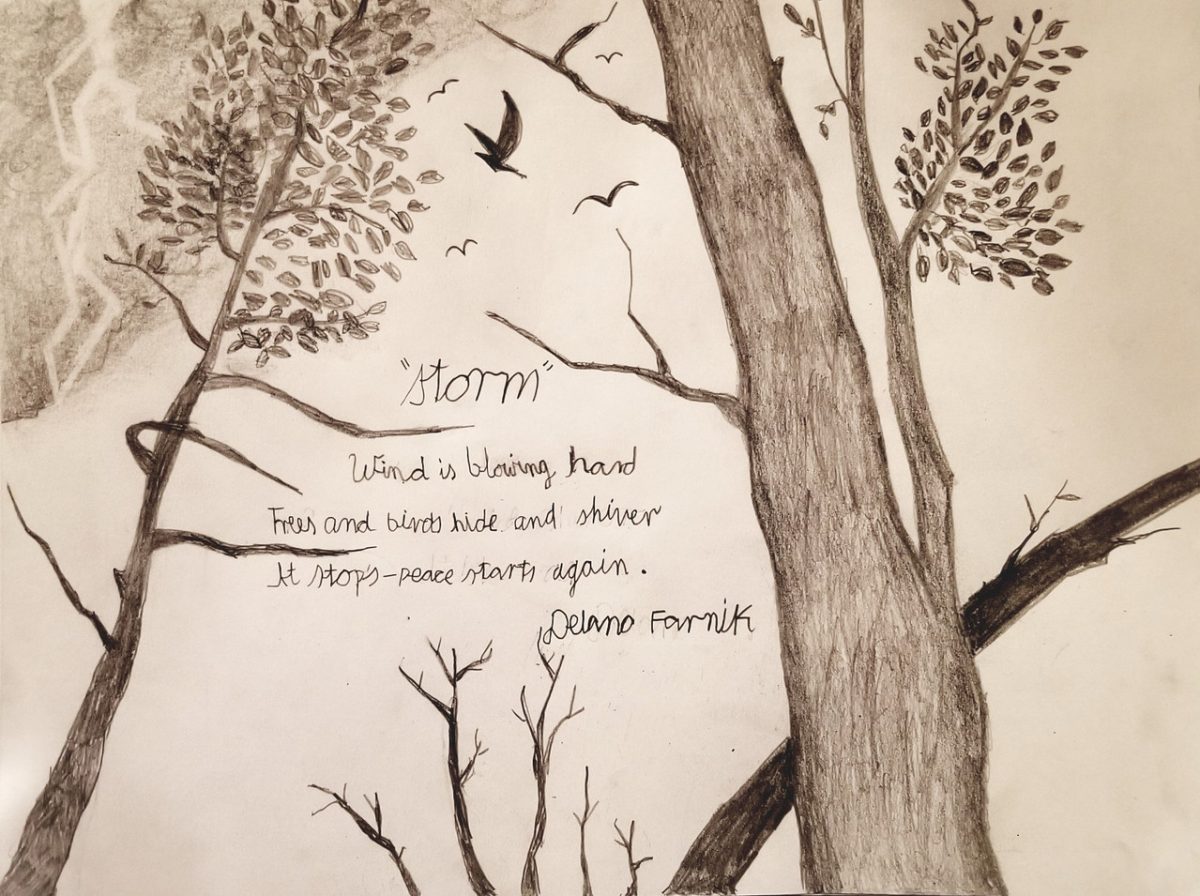 "Storm"
Wind is blowing hard
Trees and birds hide and shiver
It stop's-peace starts again.
Delano Farnik